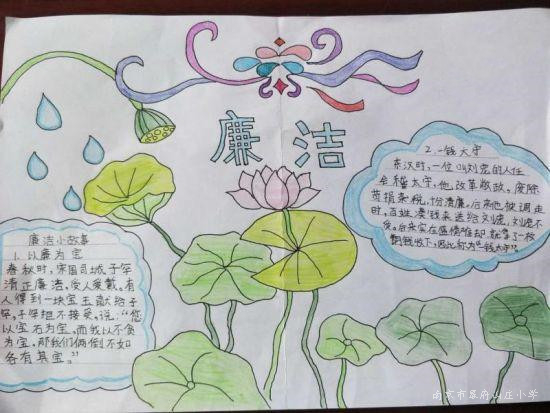 廉洁
廉洁小故事
1.以廉为宝
春秋时，宋国司城子罕
清正廉洁，受人爱戴。有
人得到一块宝玉献给子
罕，子罕坦不接受，说：“您
以宝石为宝，而我以不贪
为宝，那我们俩倒不如
各有其宝。”
2.一钱太守
东汉时，一位叫刘宠的人任
会稽太守，他改革弊政，废除
苛捐杂税，十分清廉。后来他被调走
时，百姓凑钱来送给刘宠，刘宠不
受。后来实在盛情难却，就拿了一枚
铜钱收下，因此称为“一钱太守”。
南京市翠府山庄小学